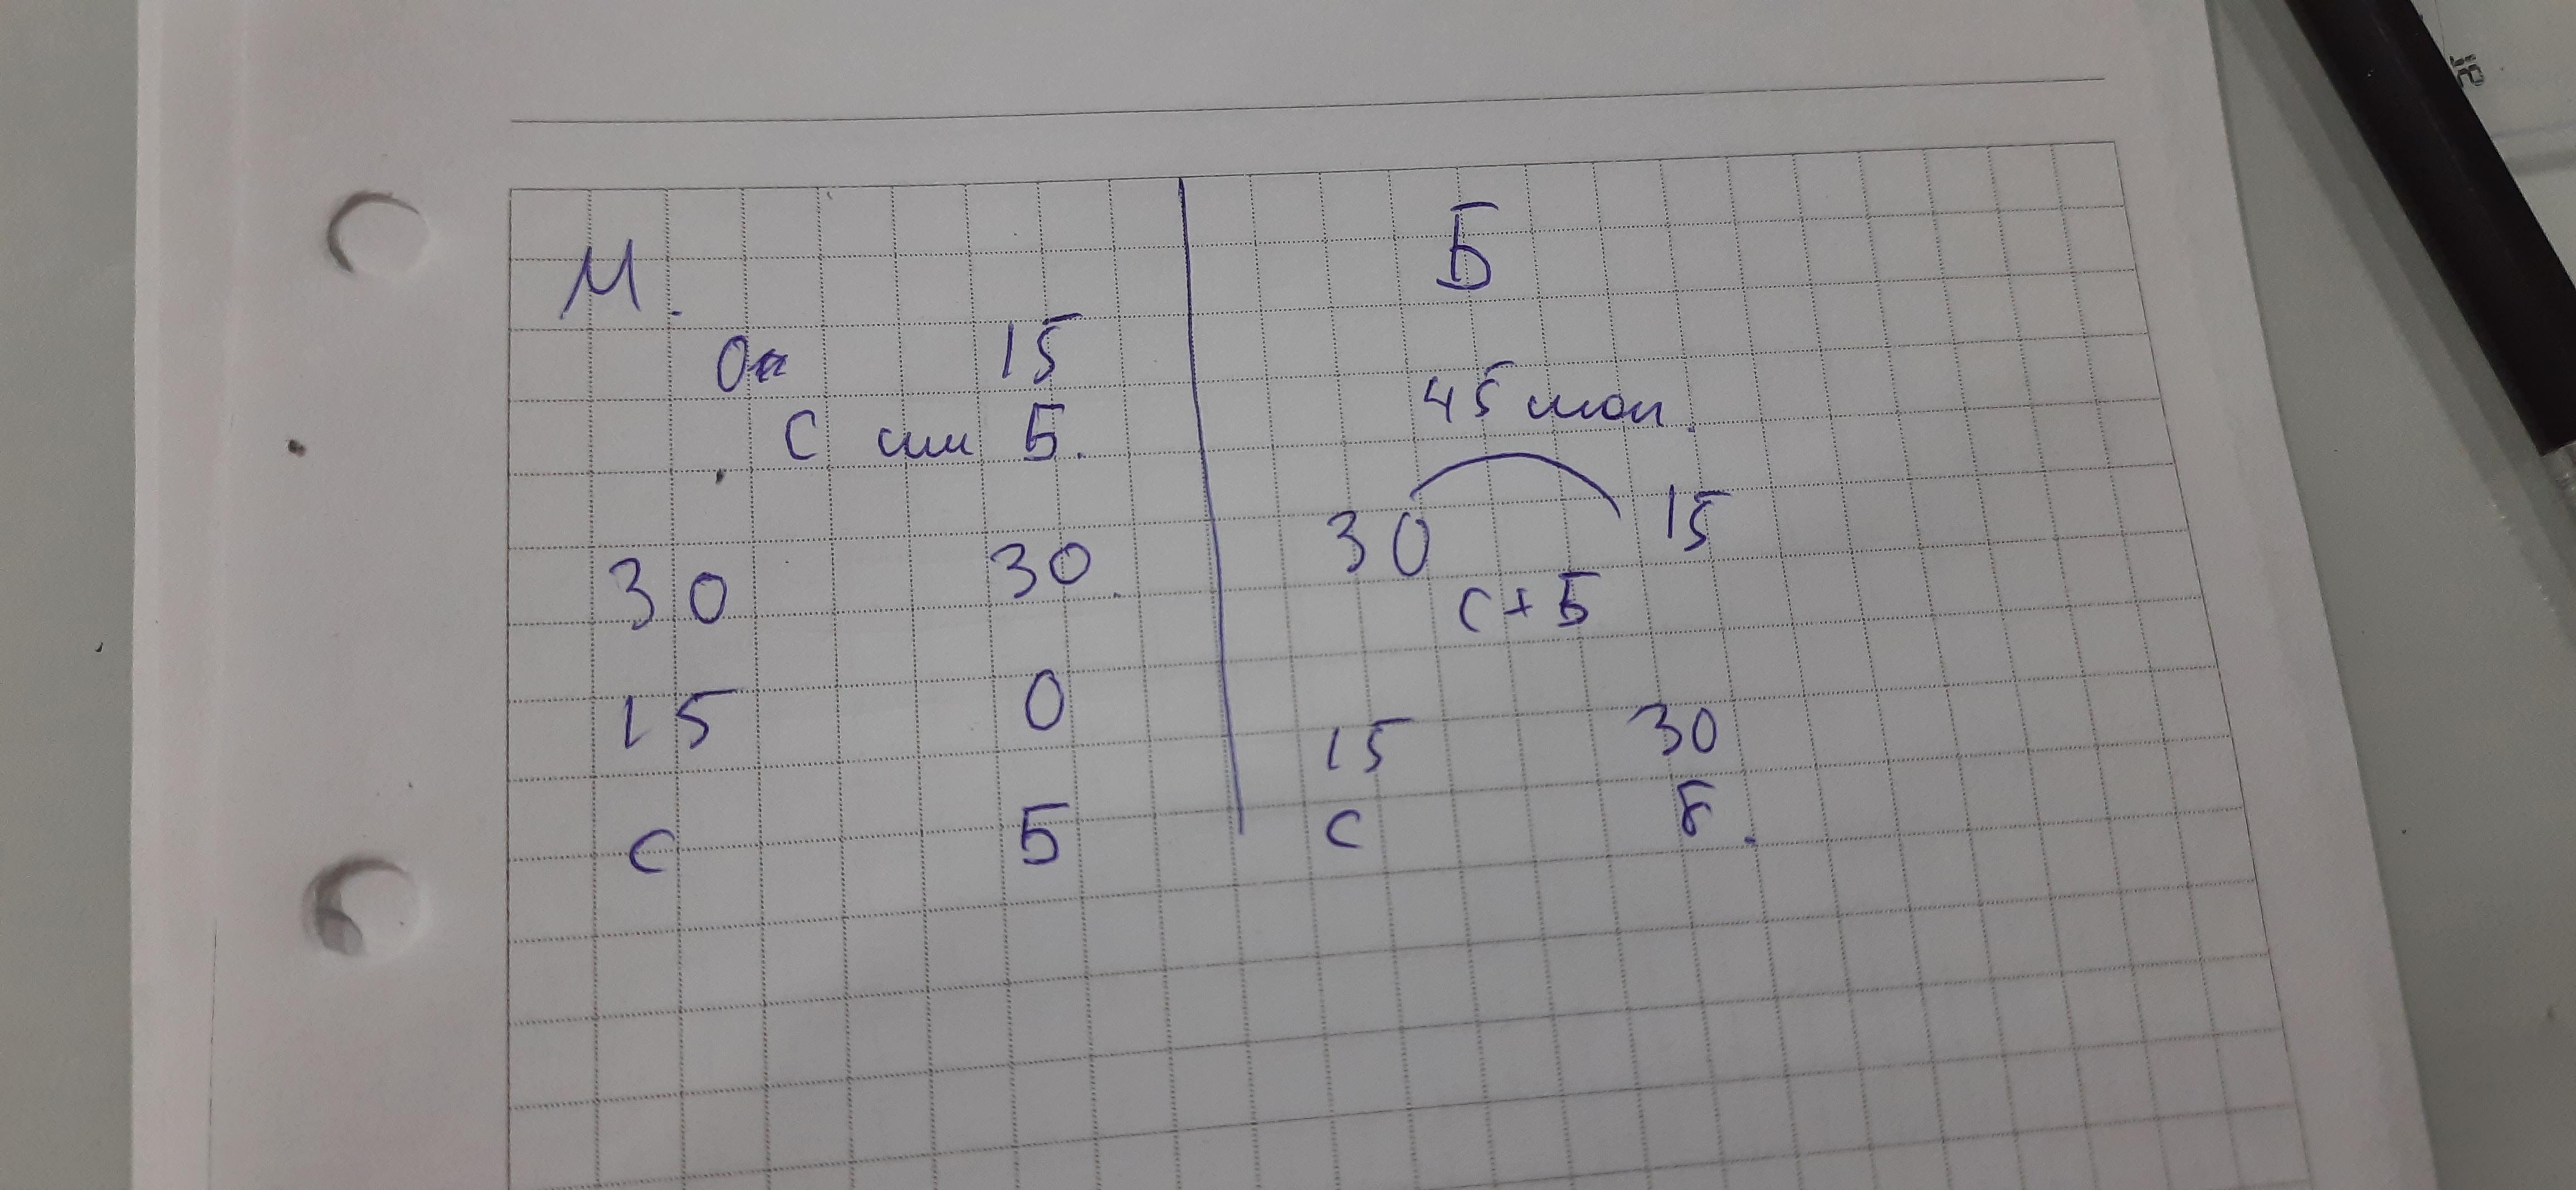 М.
0 15
С или Б.
30 30.
15 0
С Б
Б
45 мол.
30 15
С + Б
15 30
С Б.